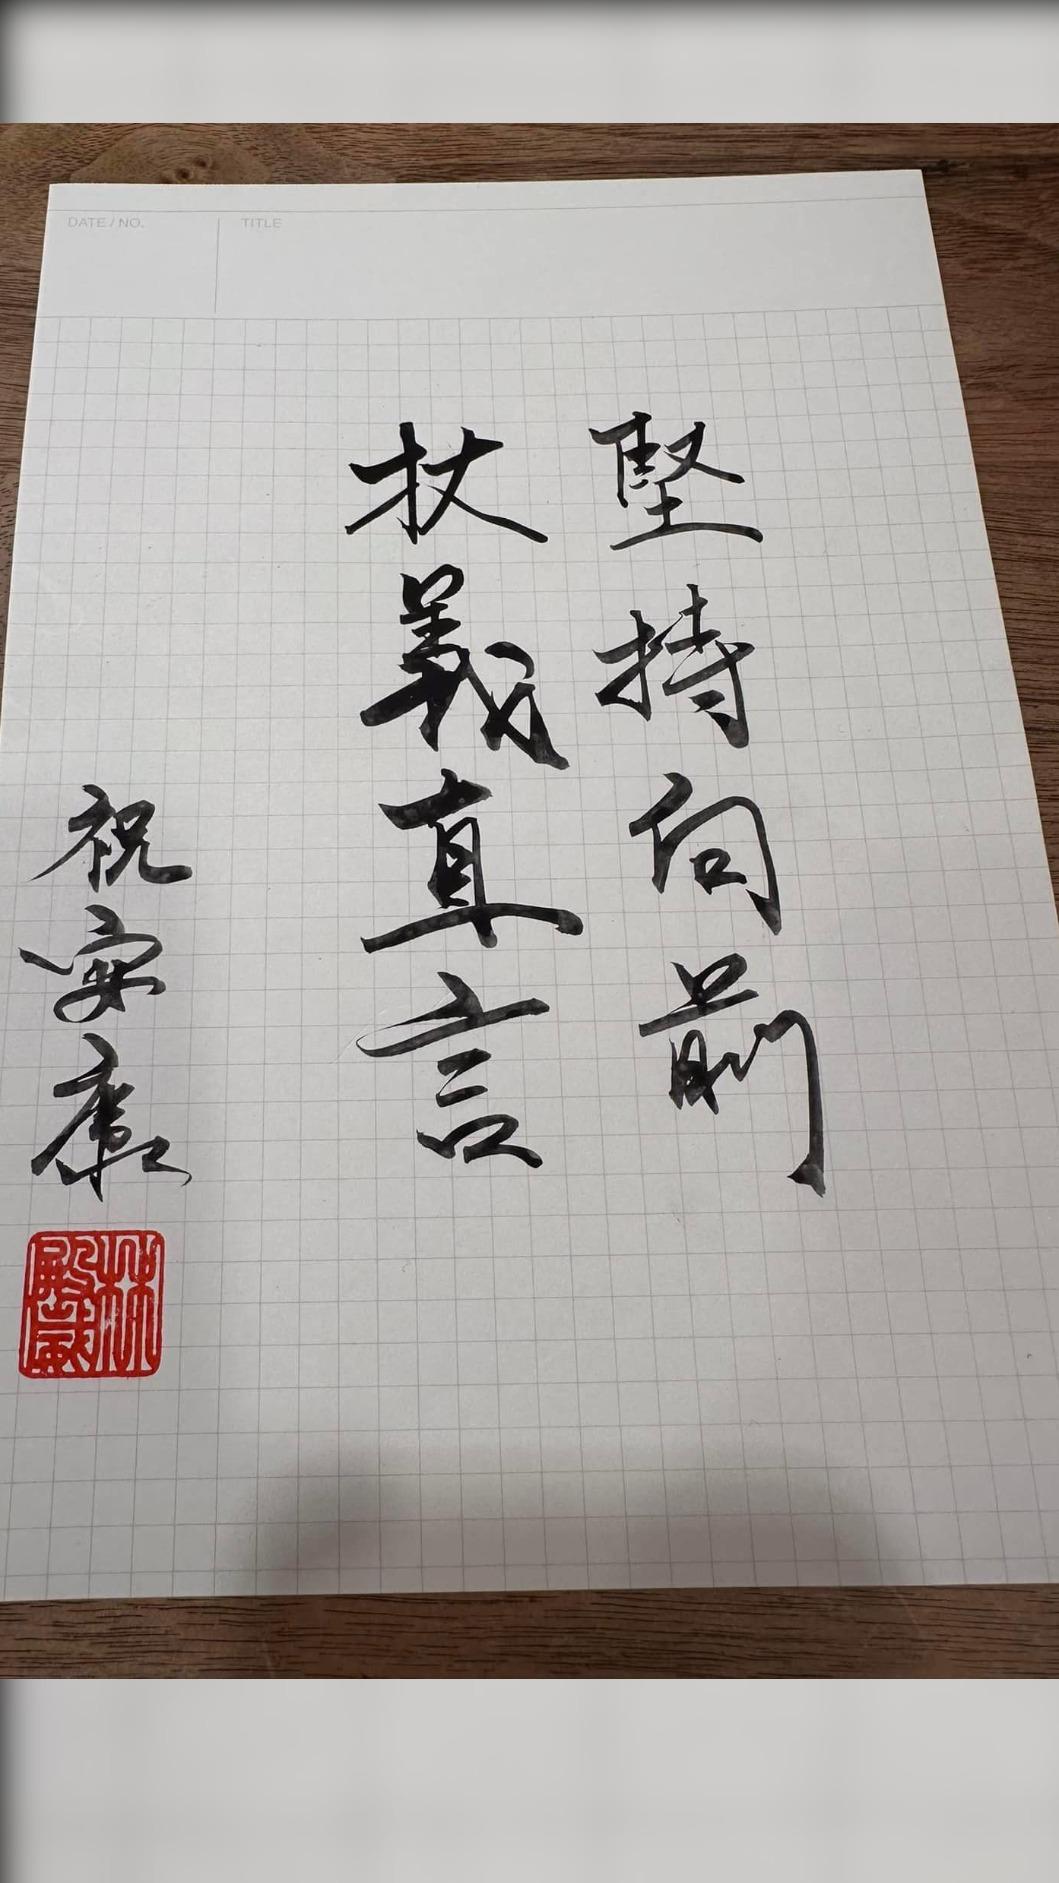 DATE / NO.
TITLE
堅持向前
扙義直言
祝安康